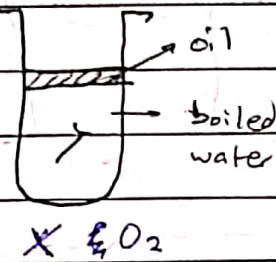 oil
boiled
water
X O₂